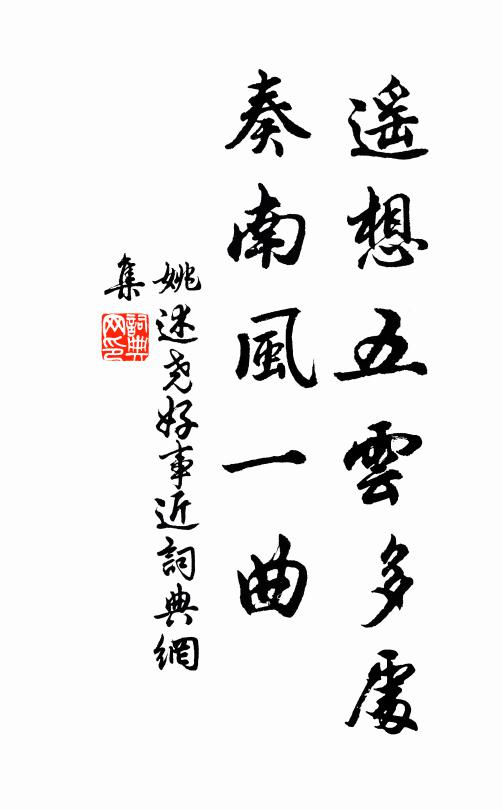 遥想五雲多處
奏南風一曲
姚述尧好事近詞典網
集
詞典
网印